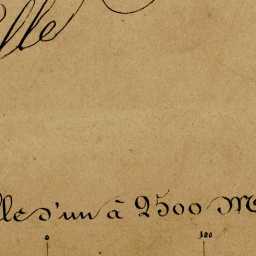 elle
lle d'un à 2500 Me
0 100